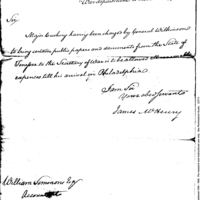 Sir
Major Cushing having been charged by General Wilkinson
to bring certain public papers and documents from the State of
to the Secretary of War is to be allowed
expences till his arrival in Philadelphia
I am Sir
Your obed Servant
James McHenry
William Simmons Esq
Accountant